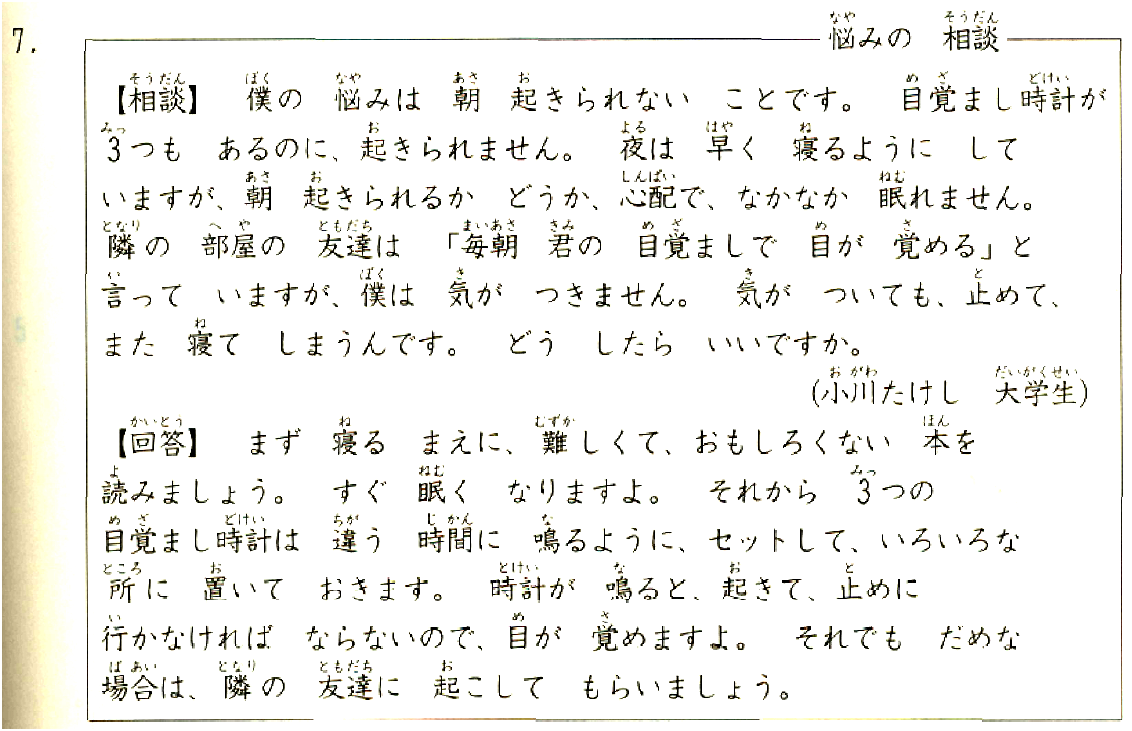 7.
悩みの 相談
【相談】 僕の 悩みは 朝 起きられない ことです。 目覚まし時計が
3つも あるのに、起きられません。 夜は 早く 寝るように して
いますが、朝 起きられるか どうか、心配で、なかなか 眠れません。
隣の 部屋の 友達は 「毎朝 君の 目覚ましで 目が 覚める」と
言って いますが、僕は 気が つきません。 気が ついても、止めて、
また 寝て しまうんです。 どう したら いいですか。
(小川たけし 大学生)
【回答】 まず 寝る まえに、難しくて、おもしろくない 本を
読みましょう。 すぐ 眠く なりますよ。 それから 3つの
目覚まし時計は 違う 時間に 鳴るように、セットして、いろいろな
所に 置いて おきます。 時計が 鳴ると、起きて、止めに
行かなければ ならないので、目が 覚めますよ。 それでも だめな
場合は、隣の 友達に 起こして もらいましょう。